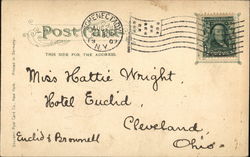 Post Card
SCHENECTADY
N.Y.
THIS SIDE FOR THE ADDRESS.
Miss Hattie Wright
Hotel Euclid,
Cleveland,
Euclid & Brownell
Ohio.